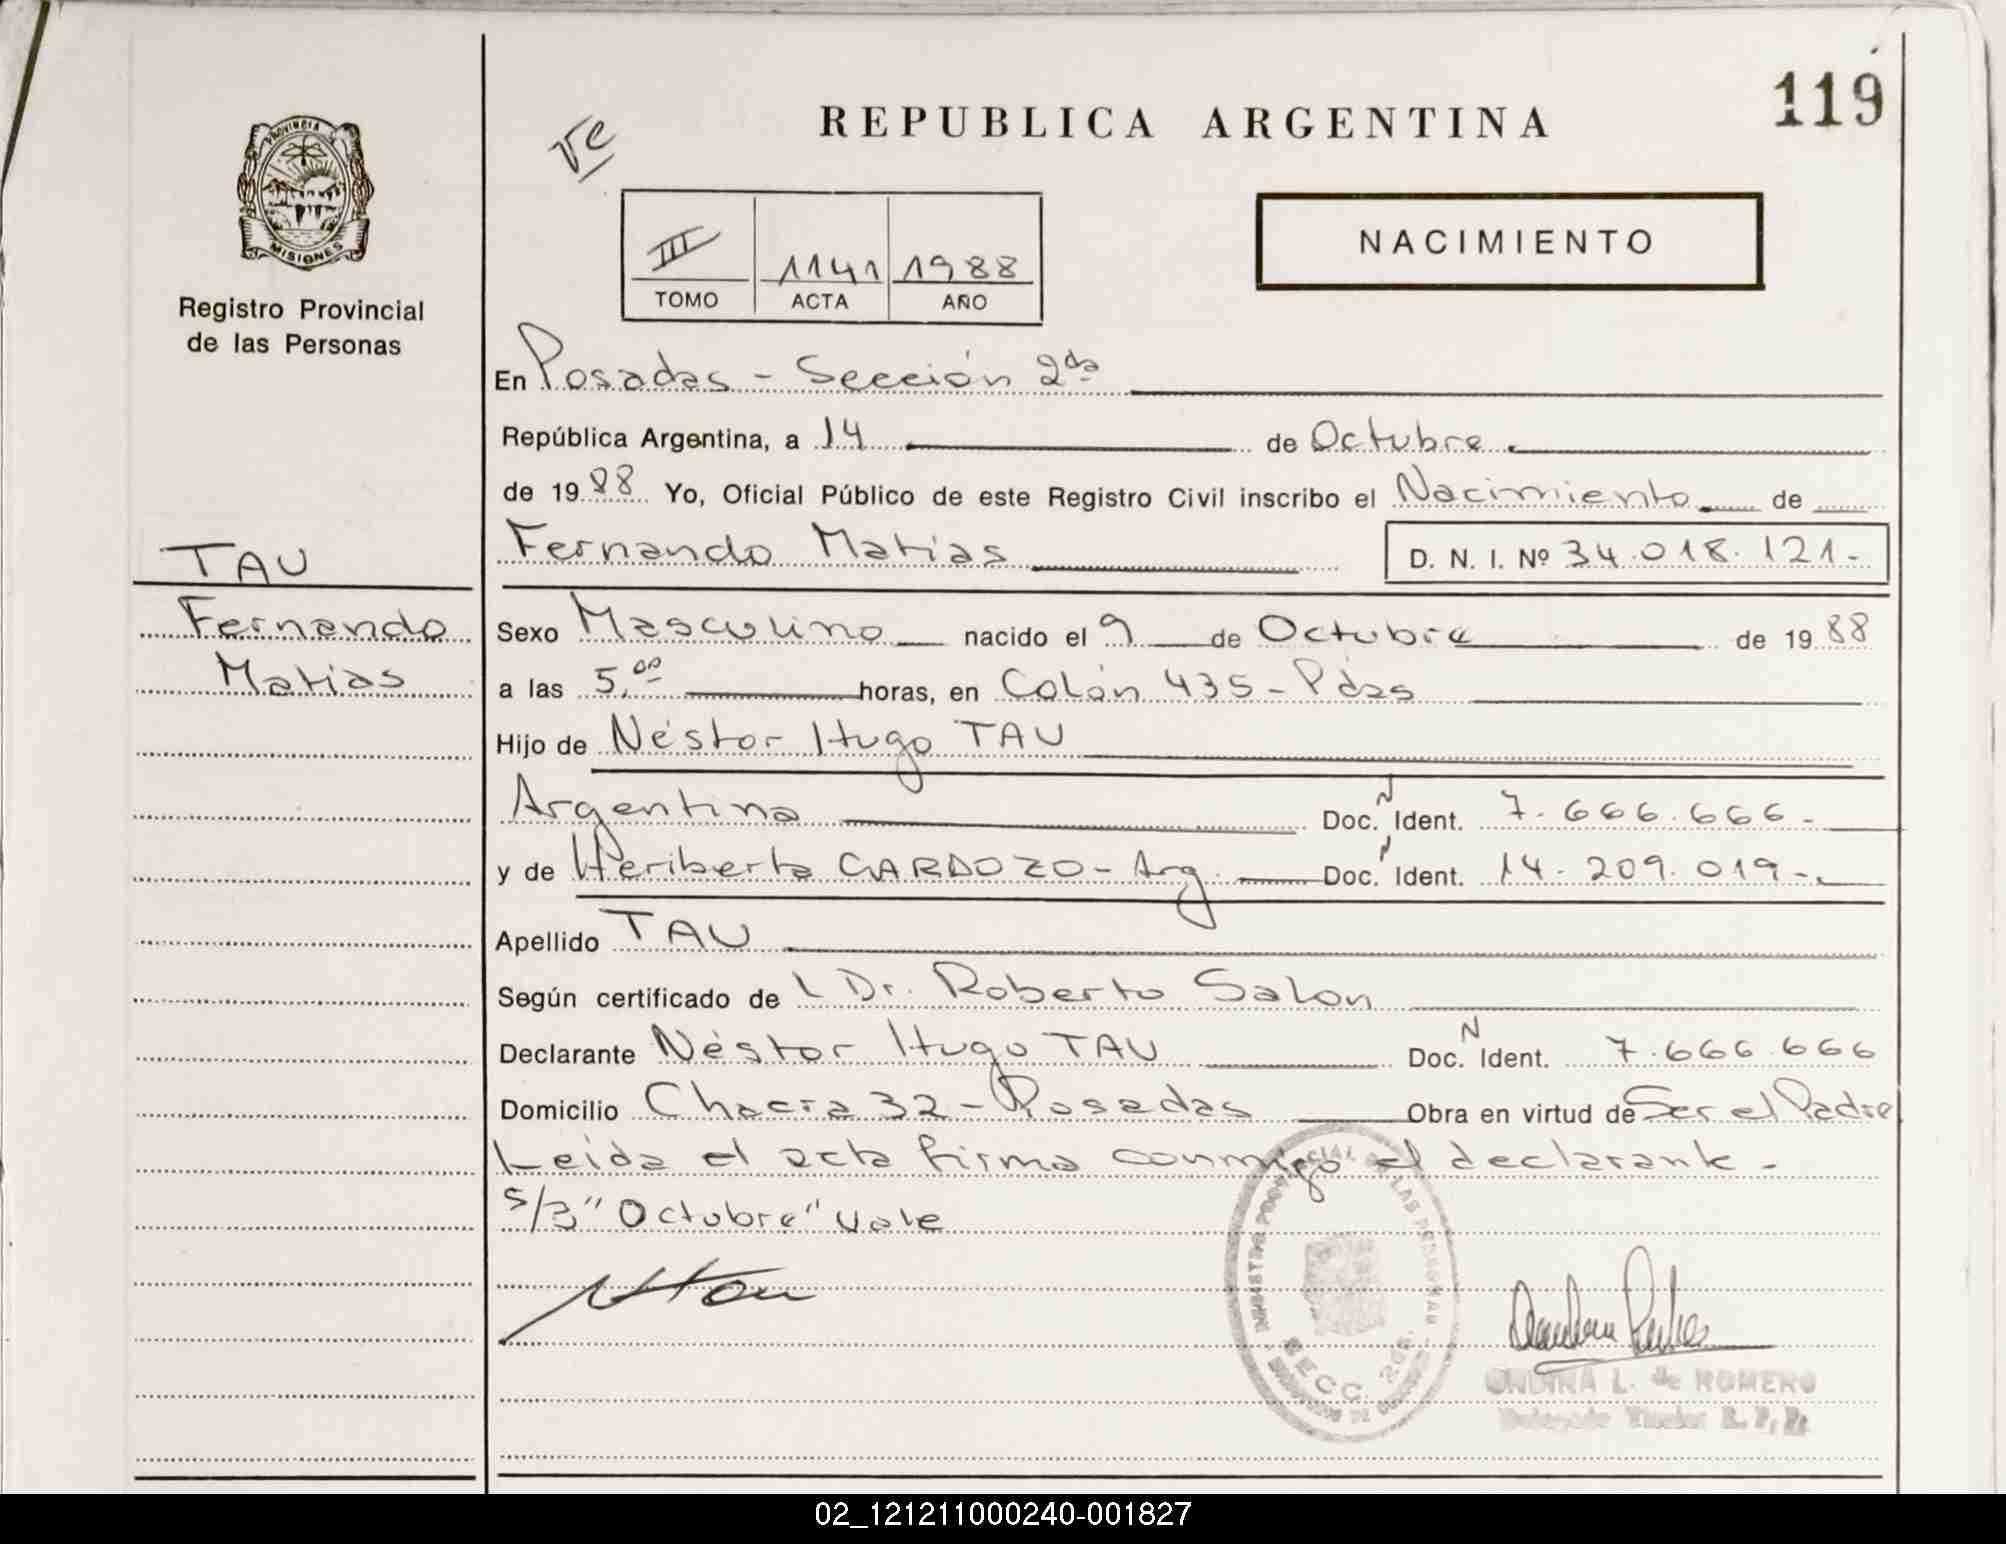 119
PROVINCIA
MISIONES
Registro Provincial
de las Personas
REPUBLICA ARGENTINA
NACIMIENTO
III 1141 1988
TOMO ACTA AÑO
En Posadas - Sección 2da
República Argentina, a 14 de Octubre
de 1988 Yo, Oficial Público de este Registro Civil inscribo el Nacimiento de
Fernando Matias D. N. I. Nº 34.018.121.-
TAU
Fernando
Matias
Sexo Masculino nacido el 9 de Octubre de 1988
a las 5,00 horas, en Colón 435 - Pdas
Hijo de Néstor Hugo TAU
Argentino Doc. N Ident. 7.666.666.-
y de Heriberta CARDOZO - Arg. Doc. N Ident. 14.209.019.-
Apellido TAU
Según certificado de l Dr. Roberto Salon
Declarante Néstor Hugo TAU Doc. N Ident. 7.666.666
Domicilio Chacra 32 - Posadas Obra en virtud de Ser el Padre
Leida el acta firma conmigo el declarante.-
S/B "Octubre" vale
SECC. 2da.
ONDINA L. de ROMERO
Delegado Titular R. P. P.
02_121211000240-001827